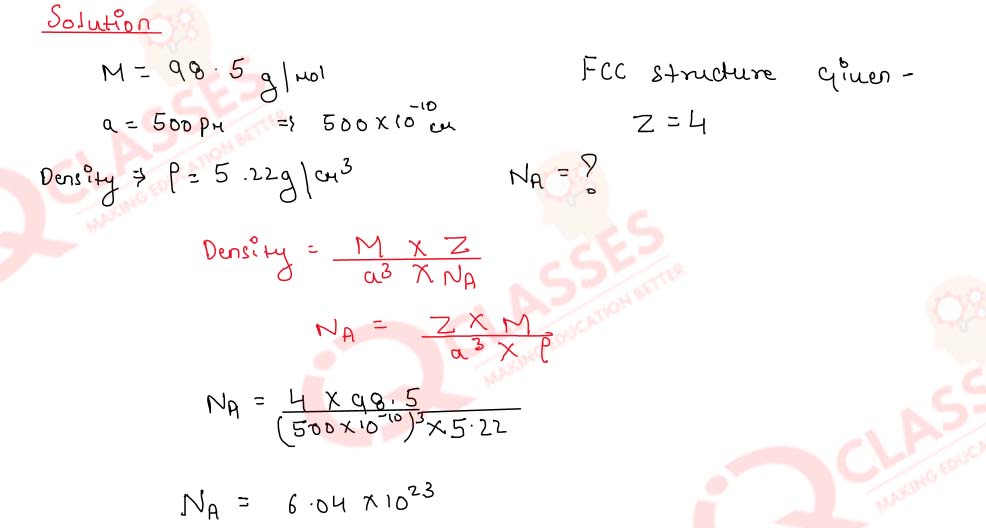 Solution
M = 98.5 g/mol
FCC structure given -
a = 500 pm ⇒ 500 × 10⁻¹⁰ cm
Z = 4
Density ⇒ ρ = 5.22 g/cm³
N_A = ?
Density = M × Z / a³ × N_A
N_A = Z × M / a³ × ρ
N_A = 4 × 98.5 / (500 × 10⁻¹⁰)³ × 5.22
N_A = 6.04 × 10²³
CLASSES
MAKING EDUCATION BETTER
CLASSES
MAKING EDUCATION BETTER
CLASSES
MAKING EDUC